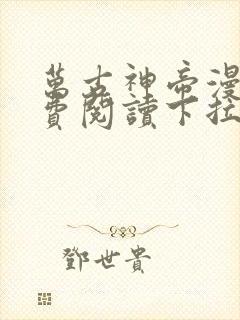 萬古神帝漫
費閱讀下拉
鄧世貴